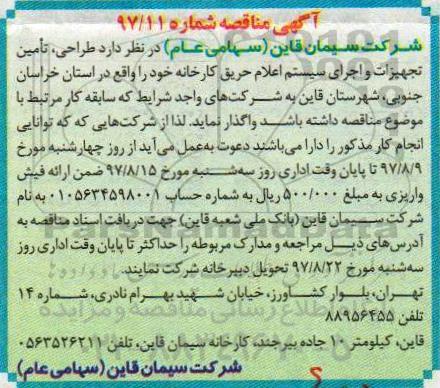 آگهی مناقصه شماره ۹۷/۱۱
شرکت سیمان قاین (سهامی عام) در نظر دارد طراحی، تأمین
تجهیزات و اجرای سیستم اعلام حریق کارخانه خود را واقع در استان خراسان
جنوبی، شهرستان قاین به شرکت‌های واجد شرایط که سابقه کار مرتبط با
موضوع مناقصه داشته باشد واگذار نماید. لذا از شرکت‌هایی که که توانایی
انجام کار مذکور را دارا می‌باشند دعوت به‌عمل می‌آید از روز چهارشنبه مورخ
۹۷/۸/۹ تا پایان وقت اداری روز سه‌شنبه مورخ ۹۷/۸/۱۵ ضمن ارائه فیش
واریزی به مبلغ ۵۰۰/۰۰۰ ریال به شماره حساب ۰۱۰۵۶۳۴۵۹۸۰۰۱ به نام
شرکت سیمان قاین (بانک ملی شعبه قاین) جهت دریافت اسناد مناقصه به
آدرس‌های ذیل مراجعه و مدارک مربوطه را حداکثر تا پایان وقت اداری روز
سه‌شنبه مورخ ۹۷/۸/۲۲ تحویل دبیرخانه شرکت نمایند.
تهران، بلوار کشاورز، خیابان شهید بهرام نادری، شماره ۱۴
تلفن ۸۸۹۵۶۴۵۵
قاین، کیلومتر ۱۰ جاده بیرجند، کارخانه سیمان قاین، تلفن ۰۵۶۳۲۵۲۶۲۱۱
شرکت سیمان قاین (سهامی عام)